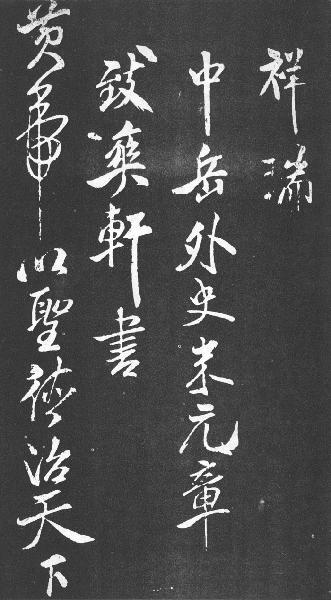 祥瑞
中岳外史米元章
致爽軒書
黄帝以聖德治天下